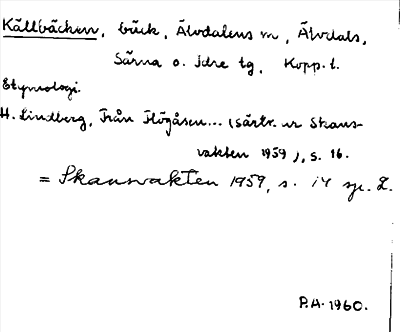 Källbäcken, bäck, Älvdalens sn, Älvdals,
Särna o. Idre tg, Kopp. l.
Etymologi.
H. Lindberg, Från Högåsen... (särtr. ur Skans-
vakten 1959), s. 16.
= Skansvakten 1959, s. 14 sp. 2.
P.H. 1960.